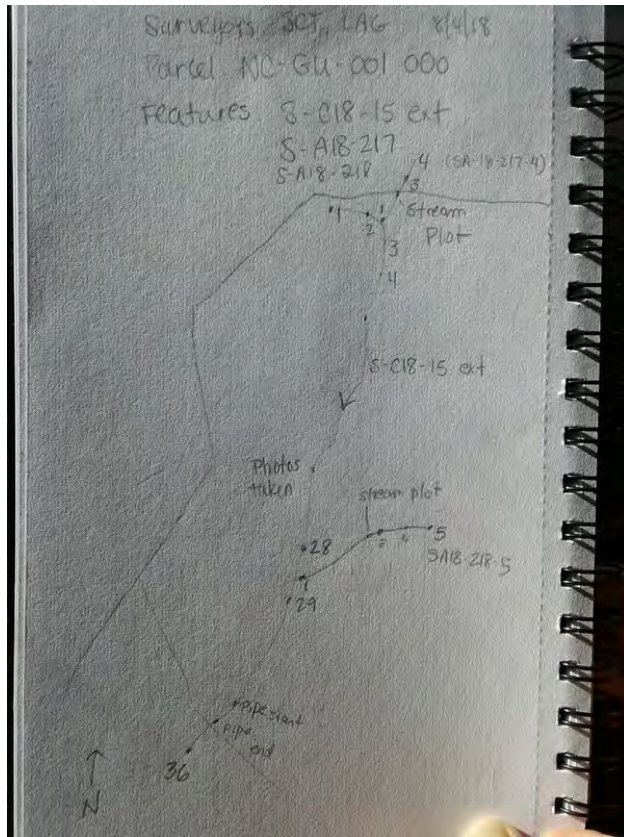 Surveyors JCJ, LAG 8/4/18
Parcel NC-GU-001 000
Features S-C18-15 ext
S-A18-217
S-A18-218
4 (SA-18-217-4)
3
1
2
1
Stream
Plot
3
4
S-C18-15 ext
Photos
taken
stream plot
28
4
5
SA18-218-5
1
29
pipe start
pipe
end
36
N